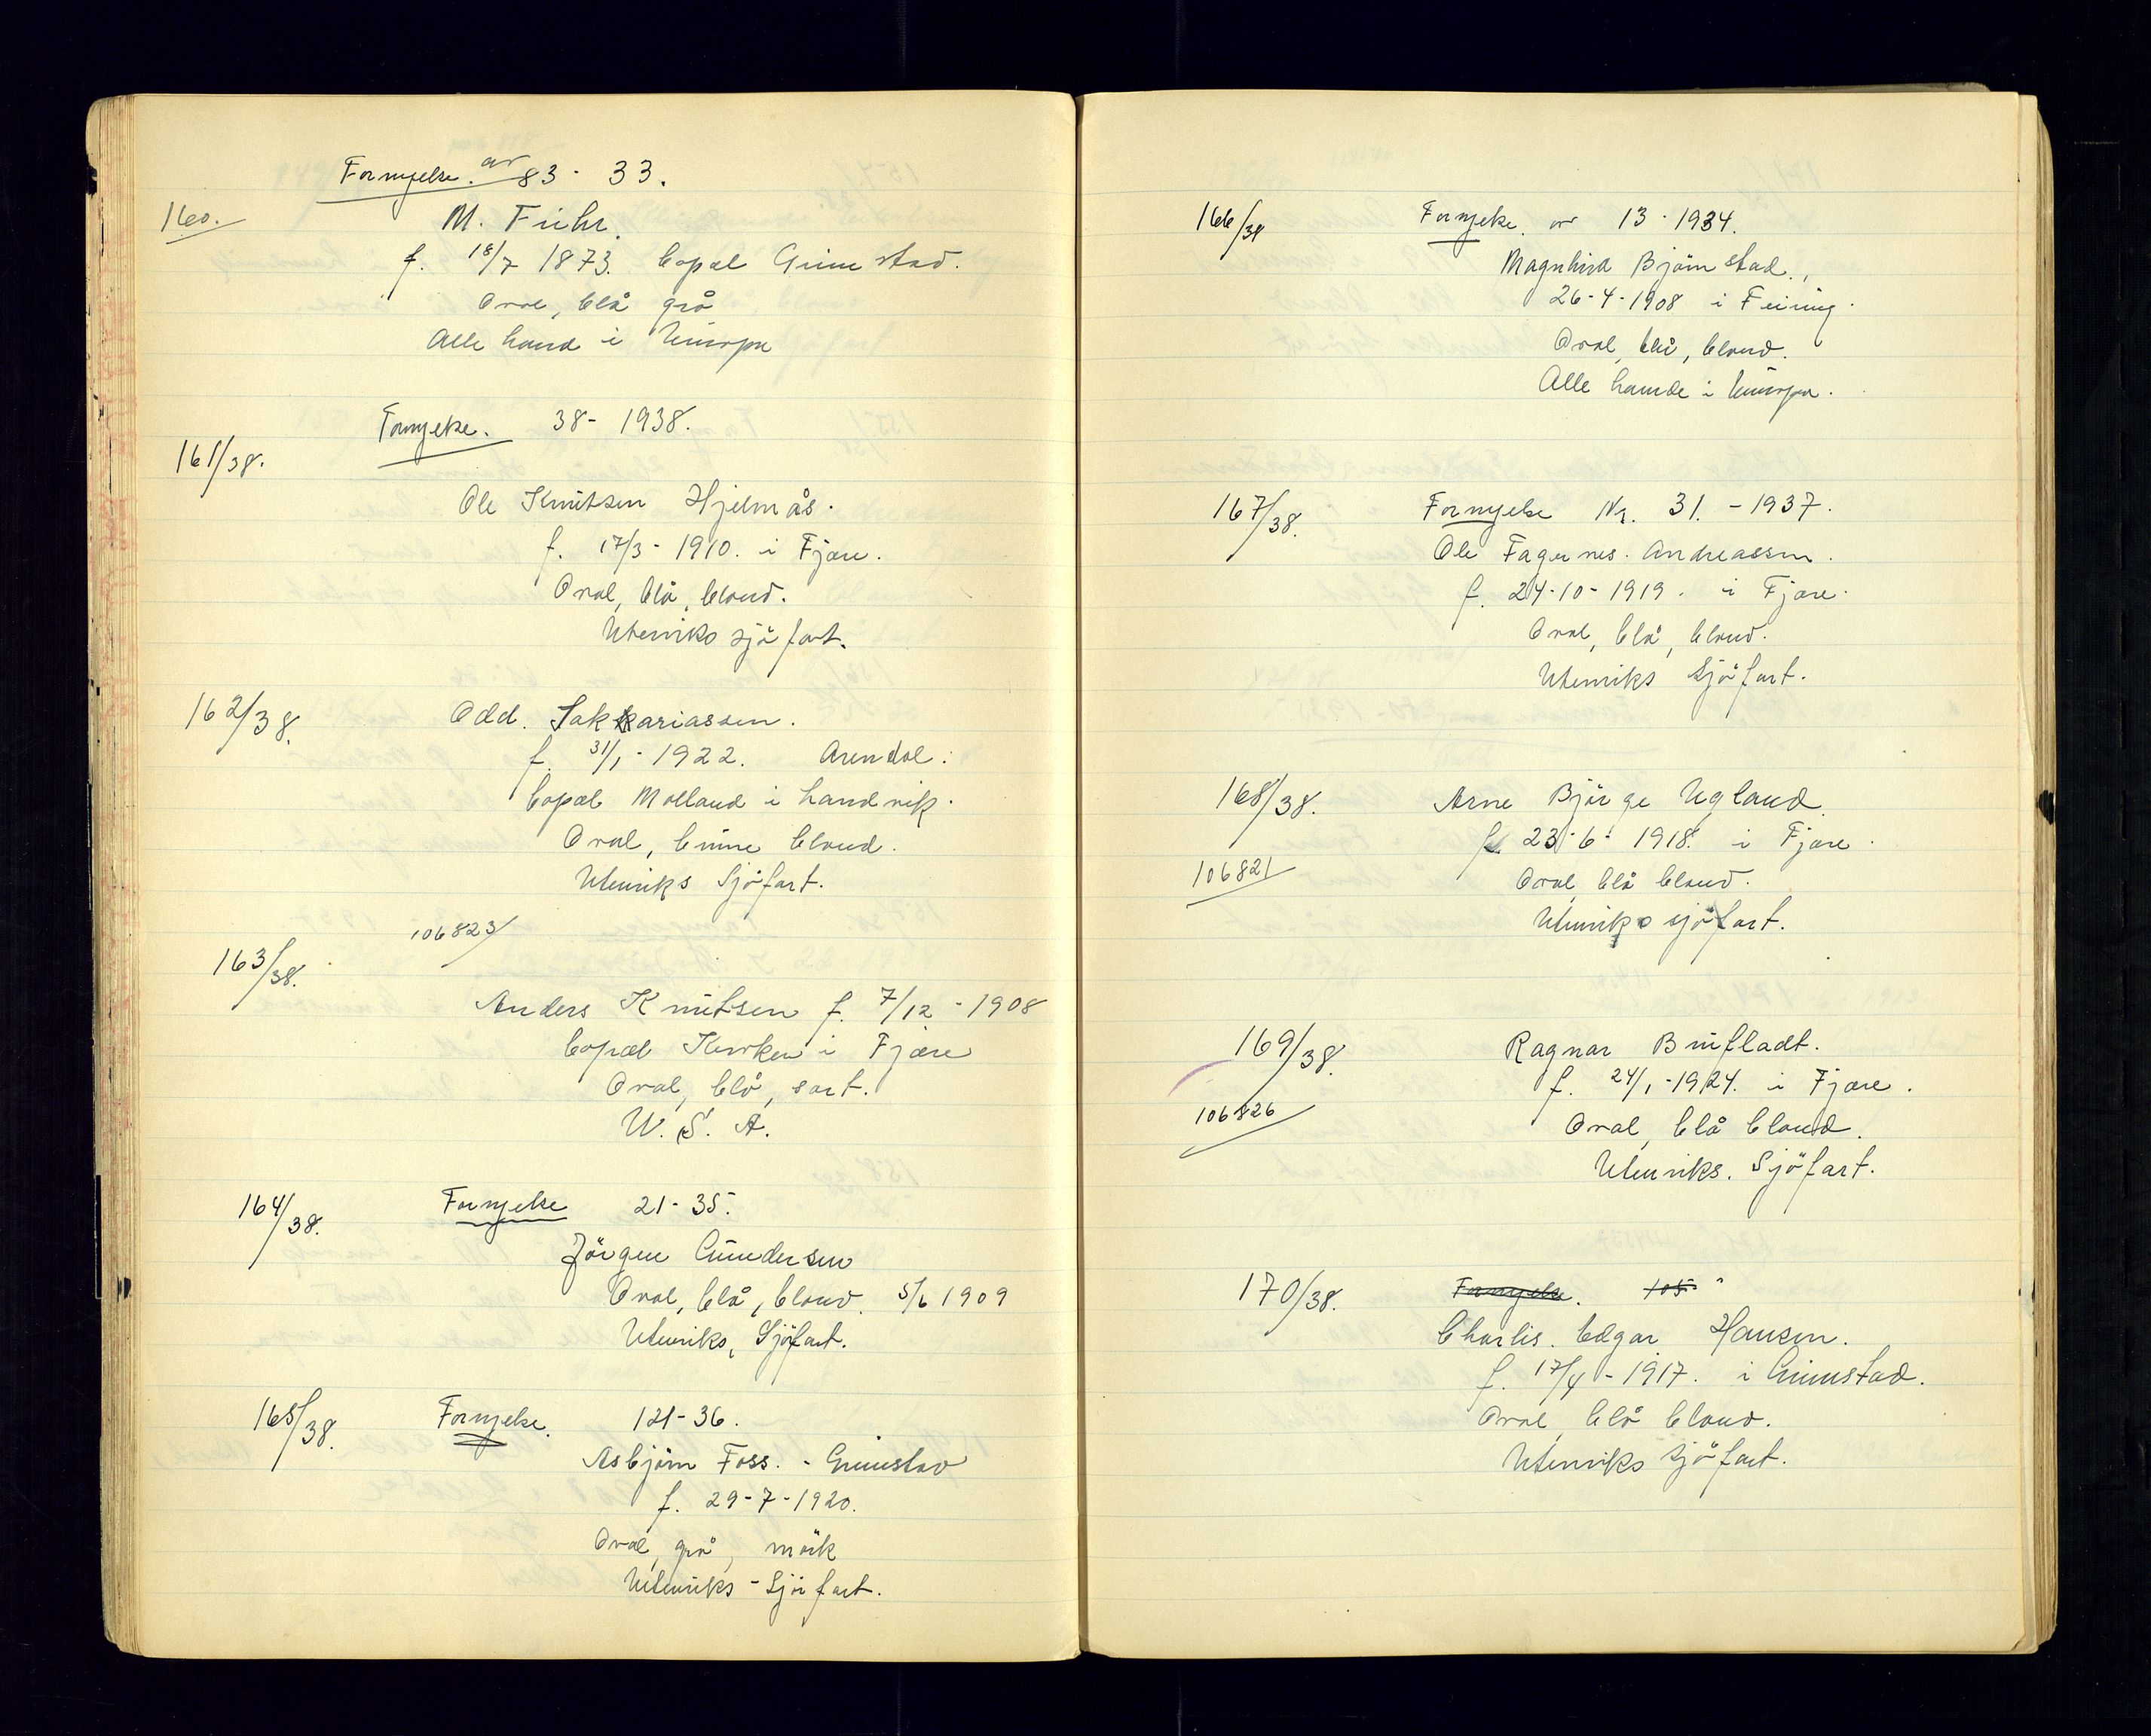 Fornyelse. av 83 - 33.
160. M. Führ.
f. 18/7 1873. bopæl Grimstad.
Oval, blå grå
Alle land i Europa
Fornyelse. 38 - 1938.
161/38.
Ole Knutsen Hjelmås.
f. 17/3 - 1910. i Fjære.
Oval, blå, blond.
Utenriks sjöfart.
162/38. Odd. Sakkariassen.
f. 31/1 - 1922. Arendal.
bopæl Molland i Landvik.
Oval, brune blond.
Utenriks Sjöfart.
106823/
163/38.
Anders Knutsen f. 7/12 - 1908
bopæl i Fjære
Oval, blå, sort.
U. S. A.
164/38. Fornyelse 21 - 35.
Jörgen Gundersen
Oval, blå, blond. 5/6 1909
Utenriks, Sjöfart.
165/38. Fornyelse. 121 - 36.
Asbjörn Foss. - Grimstad
f. 29-7-1920.
Oval, grå, mörk
Utenriks - Sjöfart.
166/38 Fornyelse. av 13 - 1934.
Magnhild Björnstad.,
26-4-1908 i Feiring.
Oval, blå, blond.
Alle lande i Europa.
167/38. Fornyelse Nr. 31. - 1937.
Ole Fagernes. Andreassen.
f. 24-10-1919. i Fjære.
Oval, blå, blond.
Utenriks Sjöfart.
168/38. Arne Björge Ugland
f. 23-6-1918. i Fjære.
106821 Oval blå blond.
Utenriks sjöfart.
169/38. Ragnar Bnifladt.
f. 24/1 - 1924. i Fjære.
106826 Oval, blå blond.
Utenriks. Sjöfart.
170/38. Fornyelse. 105
Charlis. Edgar Hansen.
f. 17/4 - 1917. i Grimstad.
Oval, blå blond.
Utenriks sjöfart.